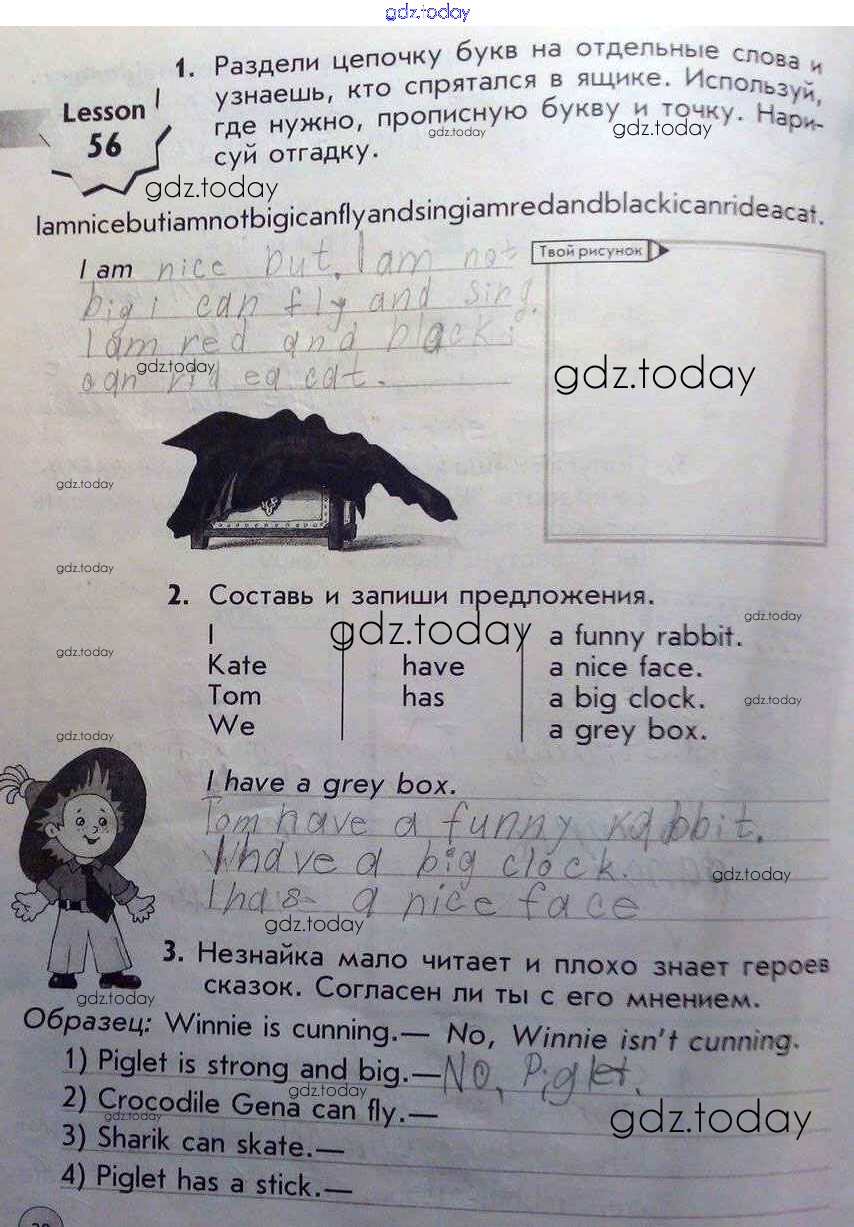 gdz.today
1. Раздели цепочку букв на отдельные слова и
узнаешь, кто спрятался в ящике. Используй,
где нужно, прописную букву и точку. Нари-
суй отгадку.
Lesson
56
gdz.today
gdz.today
gdz.today
Iamnicebutiamnotbigicanflyandsingiamredandblackicanrideacat.
I am nice but. I am not
big i can fly and sing.
I am red and black i
can rid ea cat.
Твой рисунок
gdz.today
gdz.today
gdz.today
gdz.today
2. Составь и запиши предложения.
I a funny rabbit.
Kate have a nice face.
Tom has a big clock.
We a grey box.
gdz.today
gdz.today
gdz.today
gdz.today
gdz.today
I have a grey box.
Tom have a funny rabbit.
W have a big clock.
I has a nice face
gdz.today
gdz.today
3. Незнайка мало читает и плохо знает героев
сказок. Согласен ли ты с его мнением.
gdz.today
Образец: Winnie is cunning.— No, Winnie isn't cunning.
1) Piglet is strong and big.— NO, Piglet.
2) Crocodile Gena can fly.—
3) Sharik can skate.—
4) Piglet has a stick.—
gdz.today
gdz.today
gdz.today